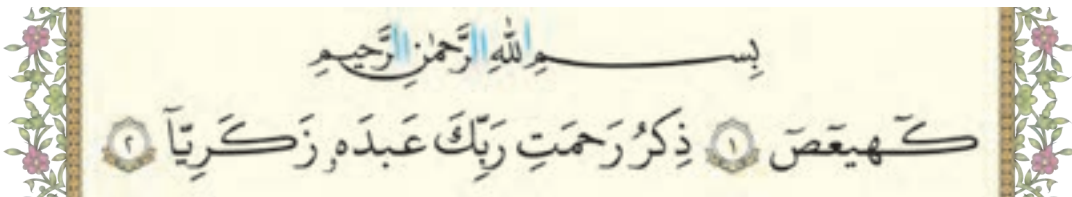 بِسـمِ اللّٰهِ الرَّحمٰنِ الرَّحيمِ
كـهيعص ١ ذِكرُ رَحمَتِ رَبِّكَ عَبدَه زَكَرِيّا ٢